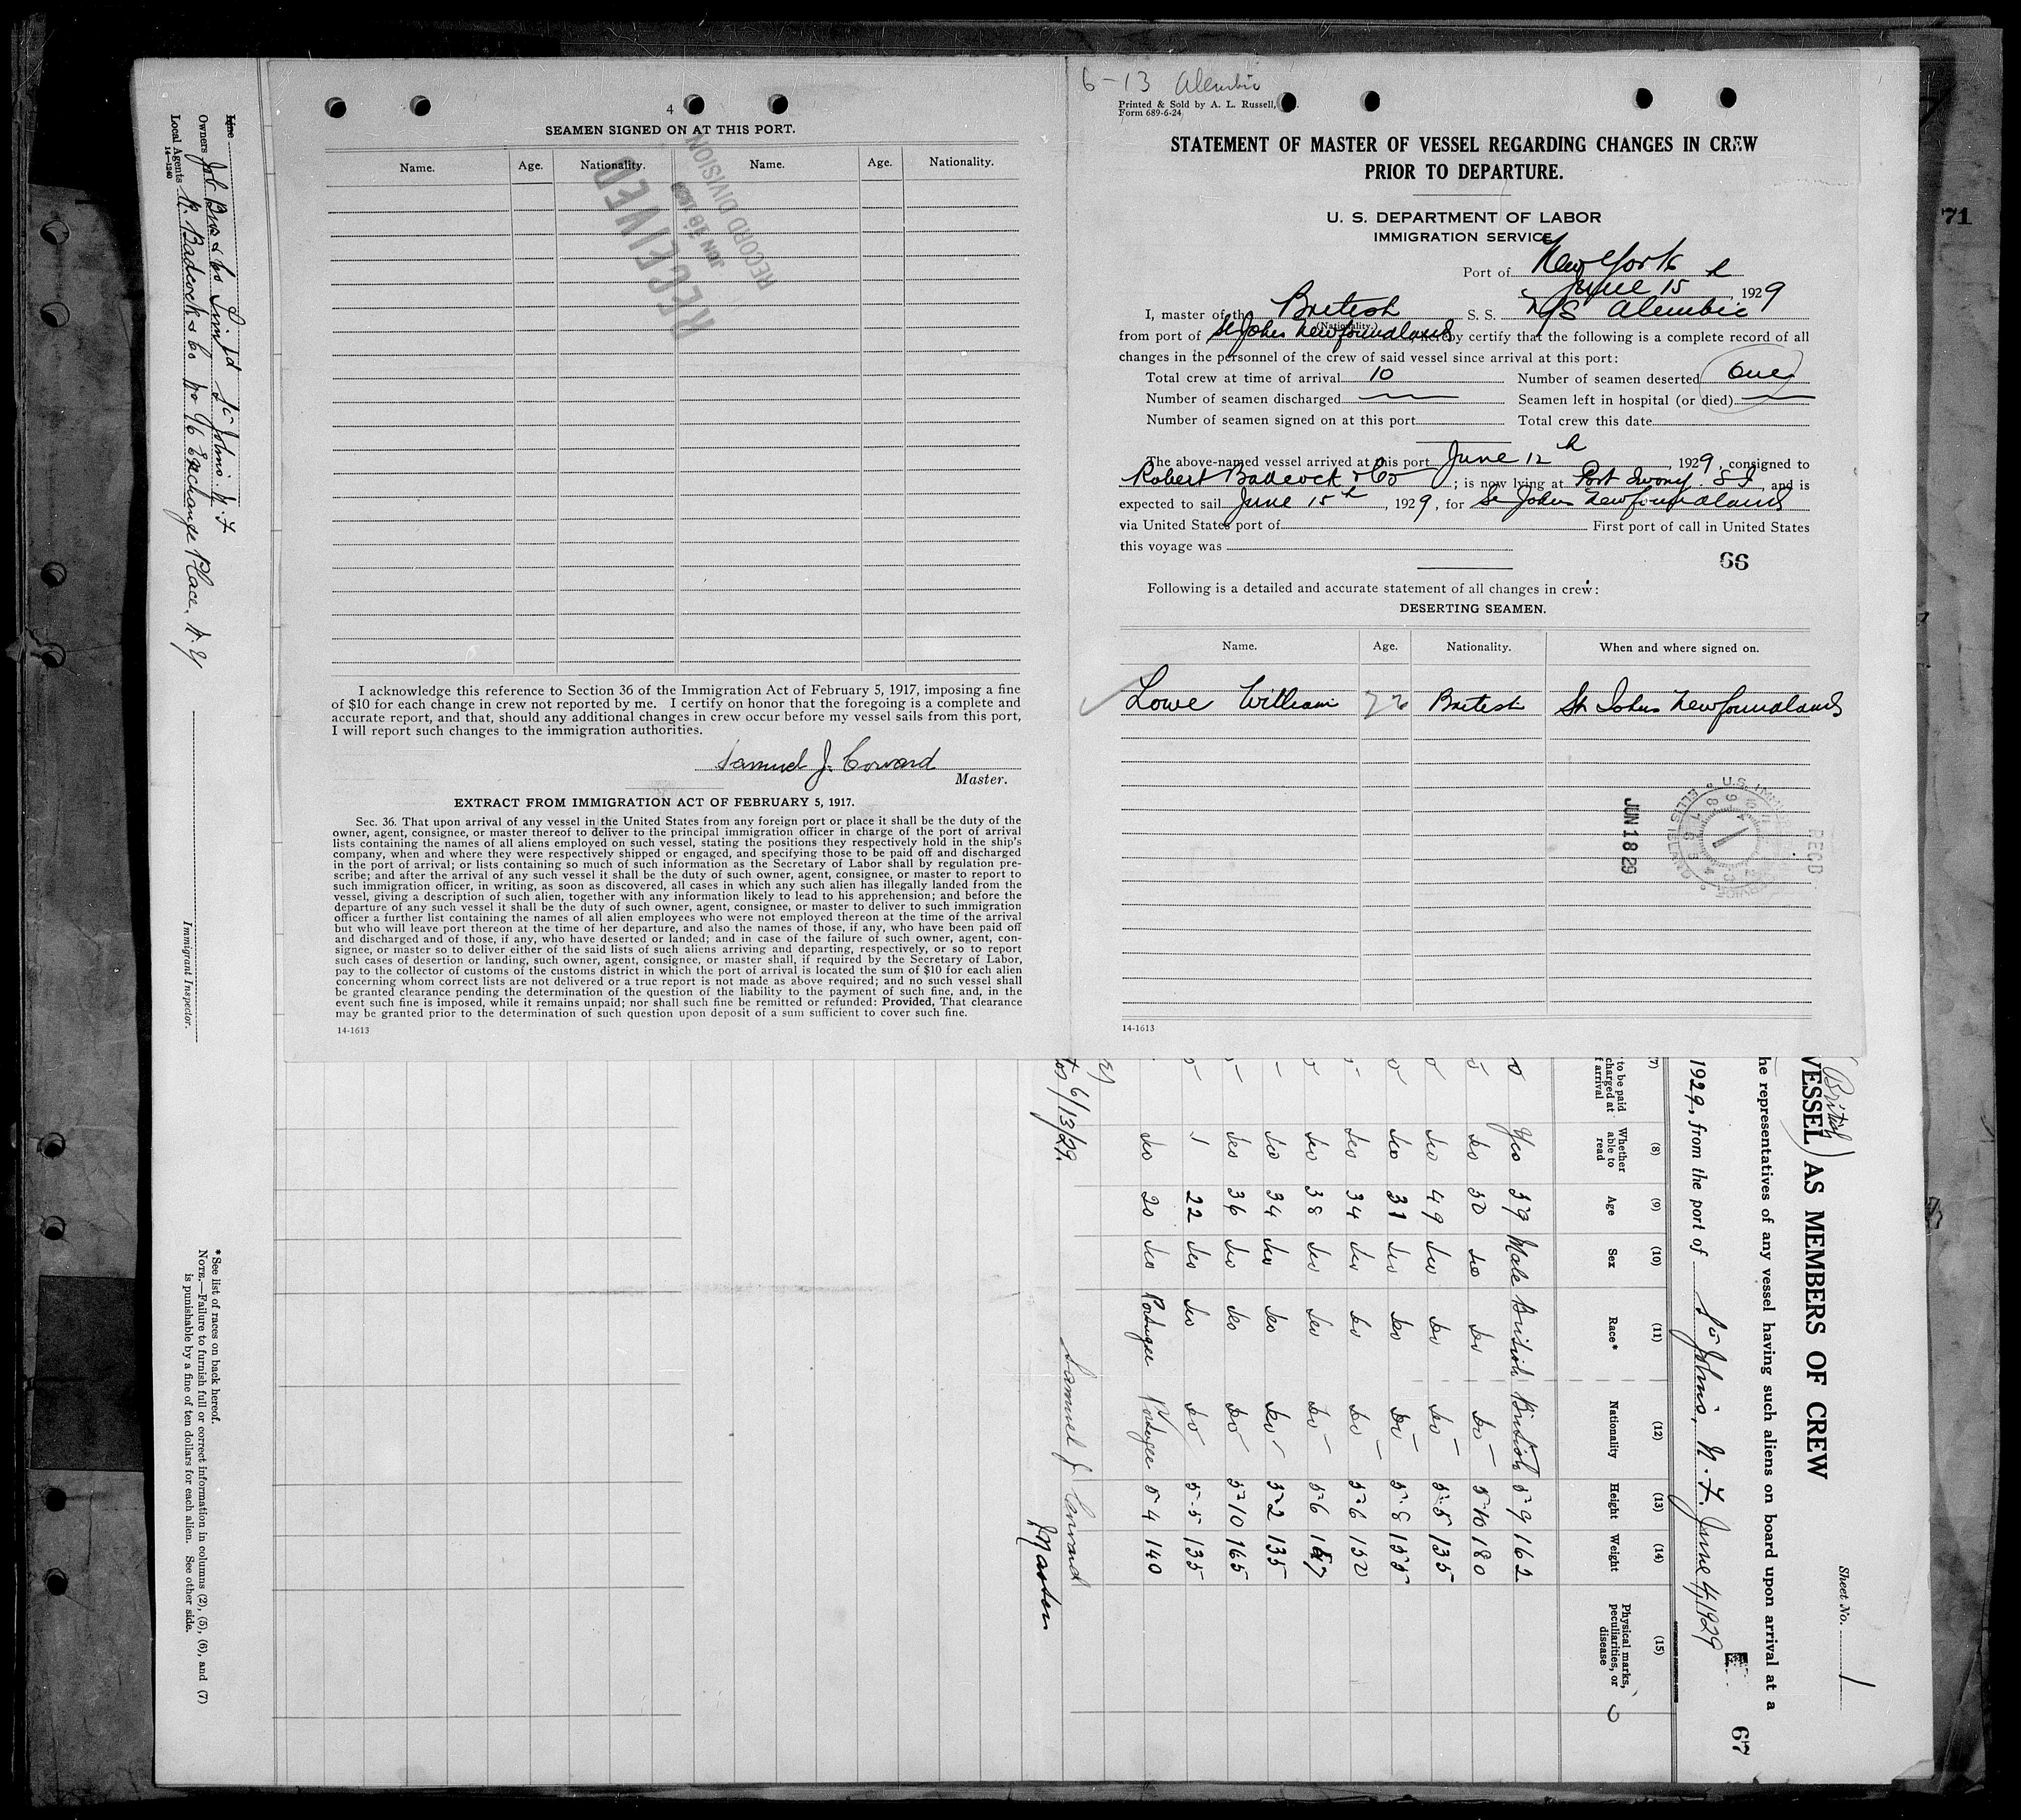 4
SEAMEN SIGNED ON AT THIS PORT.
Name. Age. Nationality. Name. Age. Nationality.
RECEIVED
RECORD DIVISION
I acknowledge this reference to Section 36 of the Immigration Act of February 5, 1917, imposing a fine
of $10 for each change in crew not reported by me. I certify on honor that the foregoing is a complete and
accurate report, and that, should any additional changes in crew occur before my vessel sails from this port,
I will report such changes to the immigration authorities.
Samuel J. Coward
Master.
EXTRACT FROM IMMIGRATION ACT OF FEBRUARY 5, 1917.
Sec. 36. That upon arrival of any vessel in the United States from any foreign port or place it shall be the duty of the
owner, agent, consignee, or master thereof to deliver to the principal immigration officer in charge of the port of arrival
lists containing the names of all aliens employed on such vessel, stating the positions they respectively hold in the ship's
company, when and where they were respectively shipped or engaged, and specifying those to be paid off and discharged
in the port of arrival; or lists containing so much of such information as the Secretary of Labor shall by regulation pre-
scribe; and after the arrival of any such vessel it shall be the duty of such owner, agent, consignee, or master to report to
such immigration officer, in writing, as soon as discovered, all cases in which any such alien has illegally landed from the
vessel, giving a description of such alien, together with any information likely to lead to his apprehension; and before the
departure of any such vessel it shall be the duty of such owner, agent, consignee, or master to deliver to such immigration
officer a further list containing the names of all alien employees who were not employed thereon at the time of the arrival
but who will leave port thereon at the time of her departure, and also the names of those, if any, who have been paid off
and discharged and of those, if any, who have deserted or landed; and in case of the failure of such owner, agent, con-
signee, or master so to deliver either of the said lists of such aliens arriving and departing, respectively, or so to report
such cases of desertion or landing, such owner, agent, consignee, or master shall, if required by the Secretary of Labor,
pay to the collector of customs of the customs district in which the port of arrival is located the sum of $10 for each alien
concerning whom correct lists are not delivered or a true report is not made as above required; and no such vessel shall
be granted clearance pending the determination of the question of the liability to the payment of such fine, and, in the
event such fine is imposed, while it remains unpaid; nor shall such fine be remitted or refunded: Provided, That clearance
may be granted prior to the determination of such question upon deposit of a sum sufficient to cover such fine.
14-1613
6-13 Alembic
Printed & Sold by A. L. Russell,
Form 689-6-24
STATEMENT OF MASTER OF VESSEL REGARDING CHANGES IN CREW
PRIOR TO DEPARTURE.
U. S. DEPARTMENT OF LABOR
IMMIGRATION SERVICE
Port of New York
June 15, 1929
I, master of the British S. S. Alembic
(Nationality.)
from port of St Johns Newfoundland hereby certify that the following is a complete record of all
changes in the personnel of the crew of said vessel since arrival at this port:
Total crew at time of arrival 10 Number of seamen deserted One
Number of seamen discharged Seamen left in hospital (or died)
Number of seamen signed on at this port Total crew this date
The above-named vessel arrived at this port June 12 h, 1929, consigned to
Robert Badcock & Co; is now lying at Port Ivory S I, and is
expected to sail June 15 h, 1929, for St Johns Newfoundland
via United States port of First port of call in United States
this voyage was
66
Following is a detailed and accurate statement of all changes in crew:
DESERTING SEAMEN.
Name. Age. Nationality. When and where signed on.
Lowe William 22 British St Johns Newfoundland
JUN 18 29
RECD
U.S. IMM
14-1613
71
Line
Owners Job Bros & Co Limjd St Johns N.F
Local Agents R. Badcock & Co No 76 Exchange Place, N.Y
14-1240
Immigrant Inspector.
*See list of races on back hereof.
NOTE.—Failure to furnish full or correct information in columns (2), (5), (6), and (7)
is punishable by a fine of ten dollars for each alien. See other side.
Sheet No. 1
(British
VESSEL) AS MEMBERS OF CREW
he representatives of any vessel having such aliens on board upon arrival at a
67
1929, from the port of St Johns, N.F. June 4, 1929
(7) (8) (9) (10) (11) (12) (13) (14) (15)
to be paid charged at arrival Whether able to read Age Sex Race* Nationality Height Weight Physical marks, peculiarities, or disease
Yes 59 Male British British 5-9 162
do 50 do do do 5-10 180
do 49 do do do 5-5 135
do 31 do do do 5-8 155
do 34 do do do 5-6 150
do 38 do do do 5-6 147
do 34 do do do 5-2 135
do 36 do do do 5-10 165
22 do do do 5-5 135
do 20 do Portugee Portugee 5-4 140
6/13/29.
Samuel J. Coward
Master